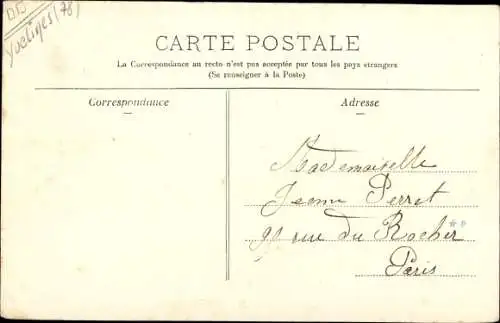 Yvelines (78)
CARTE POSTALE
La Correspondance au recto n'est pas acceptée par tous les pays étrangers
(Se renseigner à la Poste)
Correspondance
Adresse
Mademoiselle
Jeanne Perret
rue du Rocher
Paris